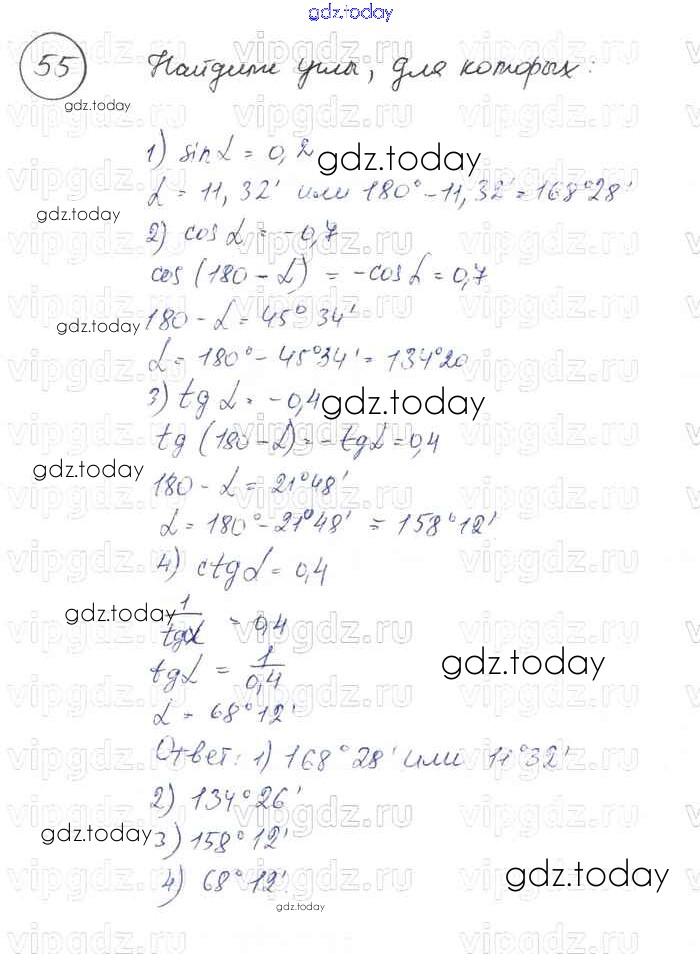 gdz.today
55 Найдите углы, для которых:
gdz.today
1) sin α = 0,2
gdz.today
α = 11, 32' или 180° - 11, 32' = 168°28'
gdz.today
2) cos α = -0,7
cos (180 - α) = -cos α = 0,7
180 - α = 45° 34'
gdz.today
α = 180° - 45°34' = 134°20
3) tg α = -0,4
gdz.today
tg (180 - α) = -tg α = 0,4
gdz.today
180 - α = 21°48'
α = 180° - 21°48' = 158°12'
4) ctg α = 0,4
gdz.today
1/tg α = 0,4
tg α = 1/0,4
gdz.today
α = 68°12'
Ответ: 1) 168°28' или 11°32'
2) 134°26'
gdz.today
3) 158°12'
4) 68°12'
gdz.today
gdz.today
vipgdz.ru